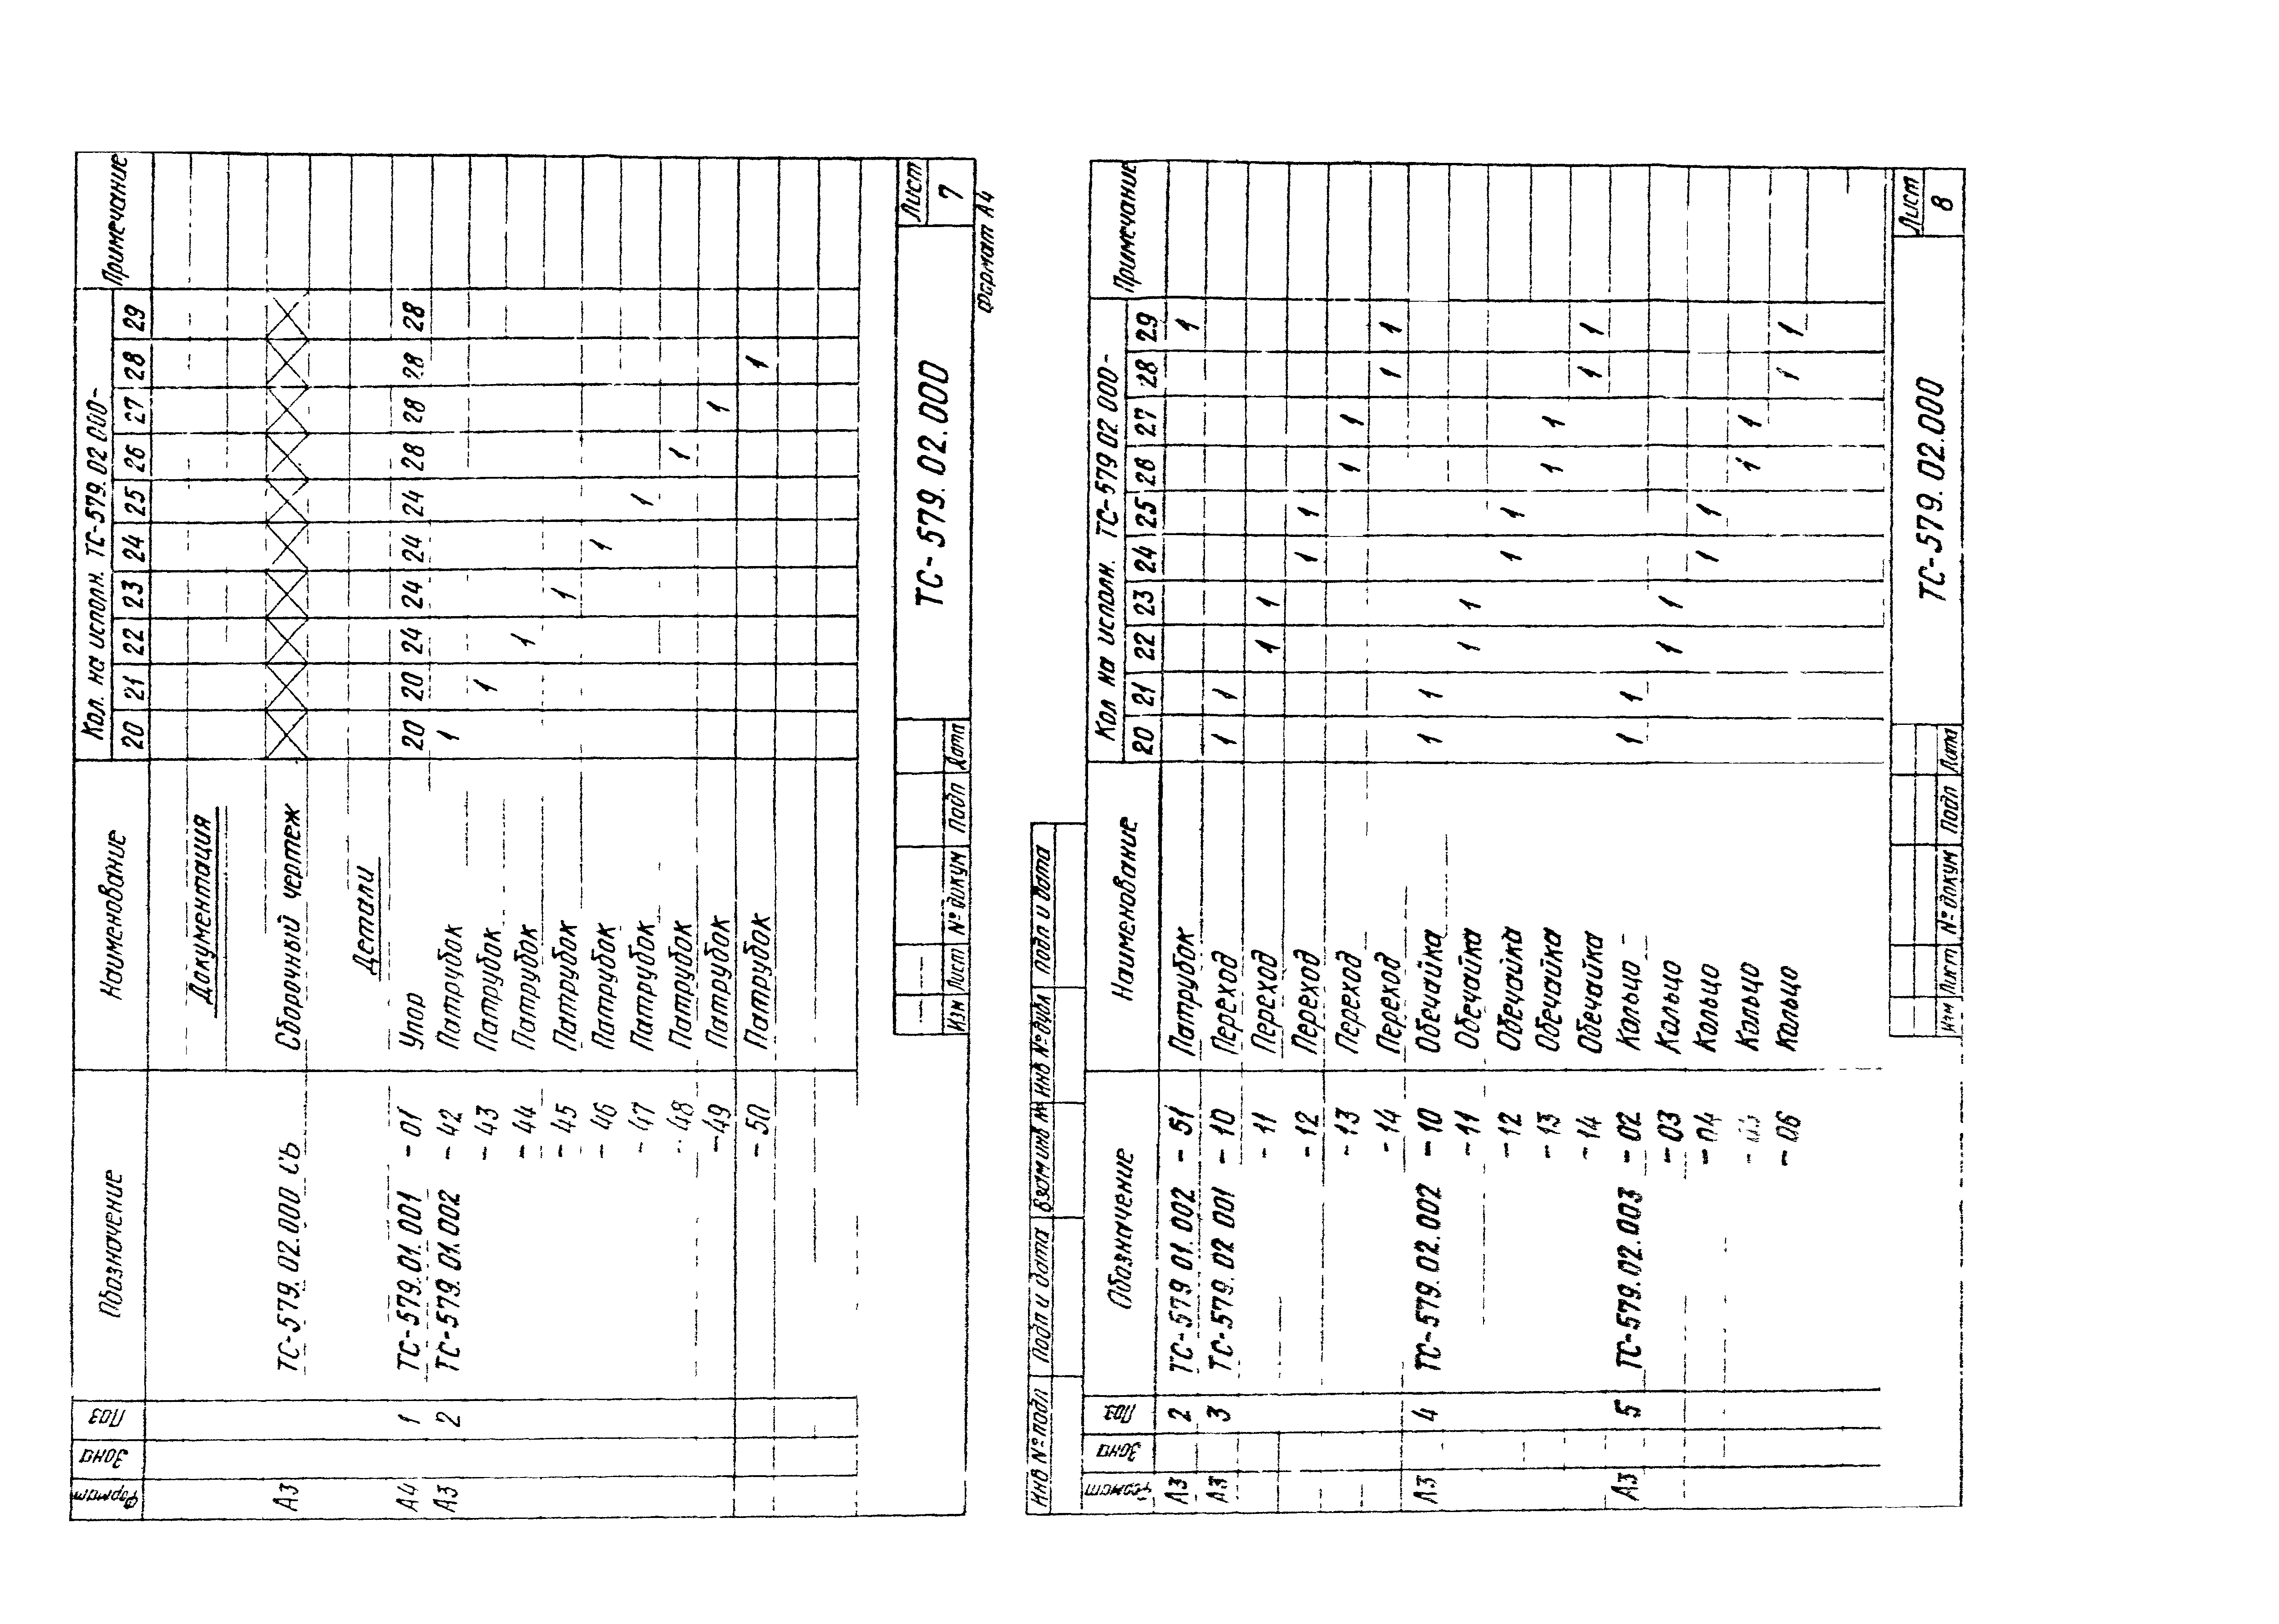 Формат Зона Поз Обозначение Наименование Кол. на исполн. ТС-579.02 000- Примечание
20 21 22 23 24 25 26 27 28 29
Документация
А3 ТС-579.02.000 СБ Сборочный чертеж
Детали
А4 1 ТС-579.01.001 -01 Упор 20 20 24 24 24 24 28 28 28 28
А3 2 ТС-579.01.002 -42 Патрубок 1
-43 Патрубок 1
-44 Патрубок 1
-45 Патрубок 1
-46 Патрубок 1
-47 Патрубок 1
-48 Патрубок 1
-49 Патрубок 1
-50 Патрубок 1
Изм Лист № докум Подп Дата ТС-579.02.000 Лист 7
Формат А4
Инв № подл Подп и дата Взам инв № Инв № дубл Подп и дата
Формат Зона Поз. Обозначение Наименование Кол на исполн. ТС-579 02 000- Примечание
20 21 22 23 24 25 26 27 28 29
А3 2 ТС-579 01.002 -51 Патрубок 1
А3 3 ТС-579.02 001 -10 Переход 1 1
-11 Переход 1 1
-12 Переход 1 1
-13 Переход 1 1
-14 Переход 1 1
А3 4 ТС-579.02.002 -10 Обечайка 1 1
-11 Обечайка 1 1
-12 Обечайка 1 1
-13 Обечайка 1 1
-14 Обечайка 1 1
А3 5 ТС-579.02.003 -02 Кольцо 1 1
-03 Кольцо 1 1
-04 Кольцо 1 1
Кольцо 1 1
-06 Кольцо 1 1
Изм Лист № докум Подп Дата ТС-579.02.000 Лист 8